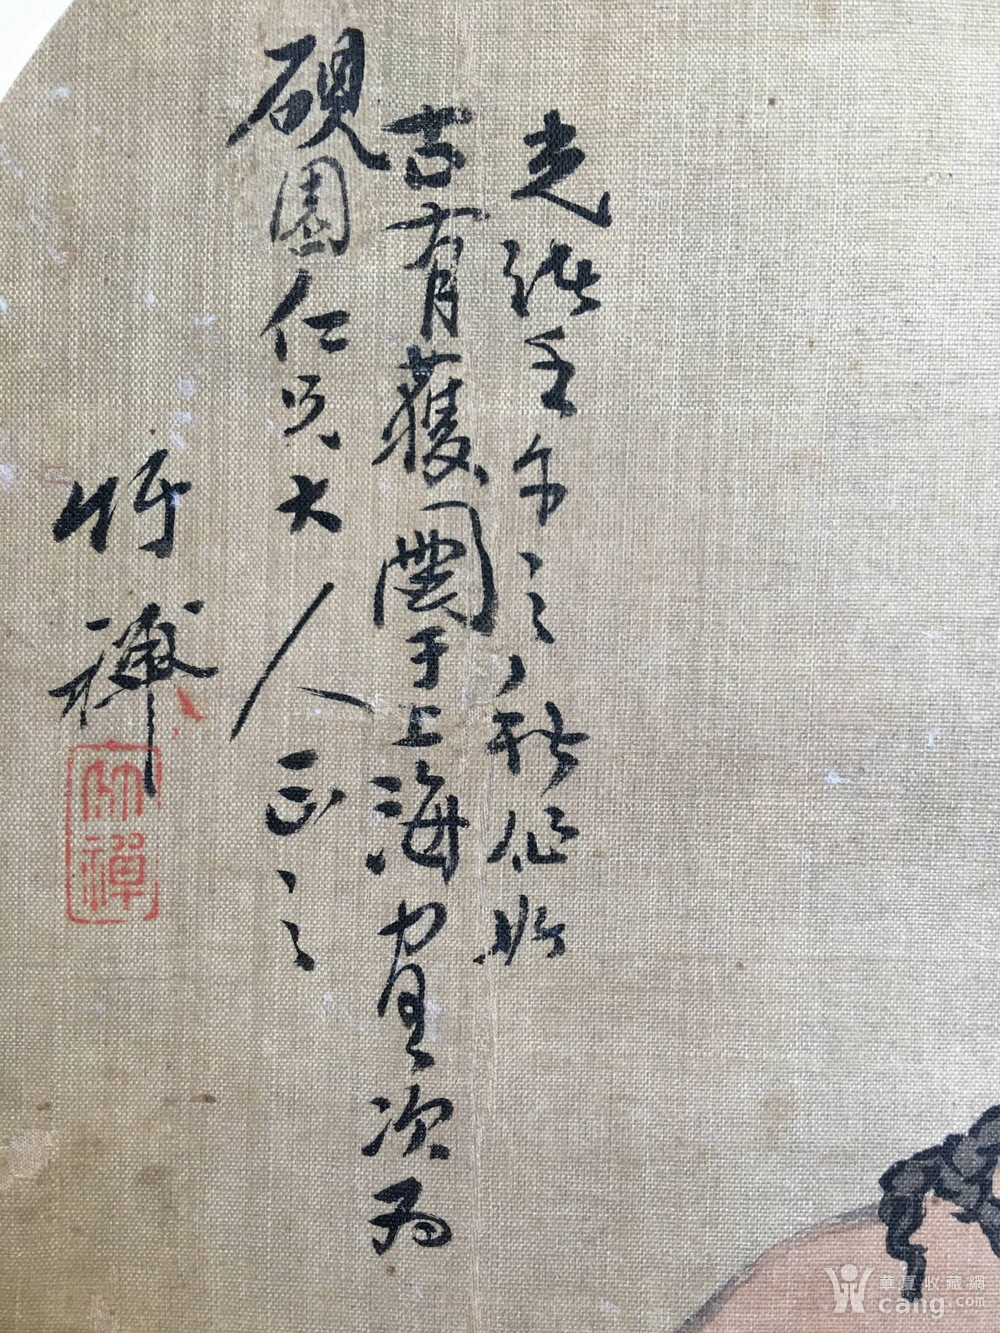 光緒壬午之秋作於
古有獲于上海寓次為
硯園仁兄大人正之
竹禪
竹禪
華夏收藏網
cang.com